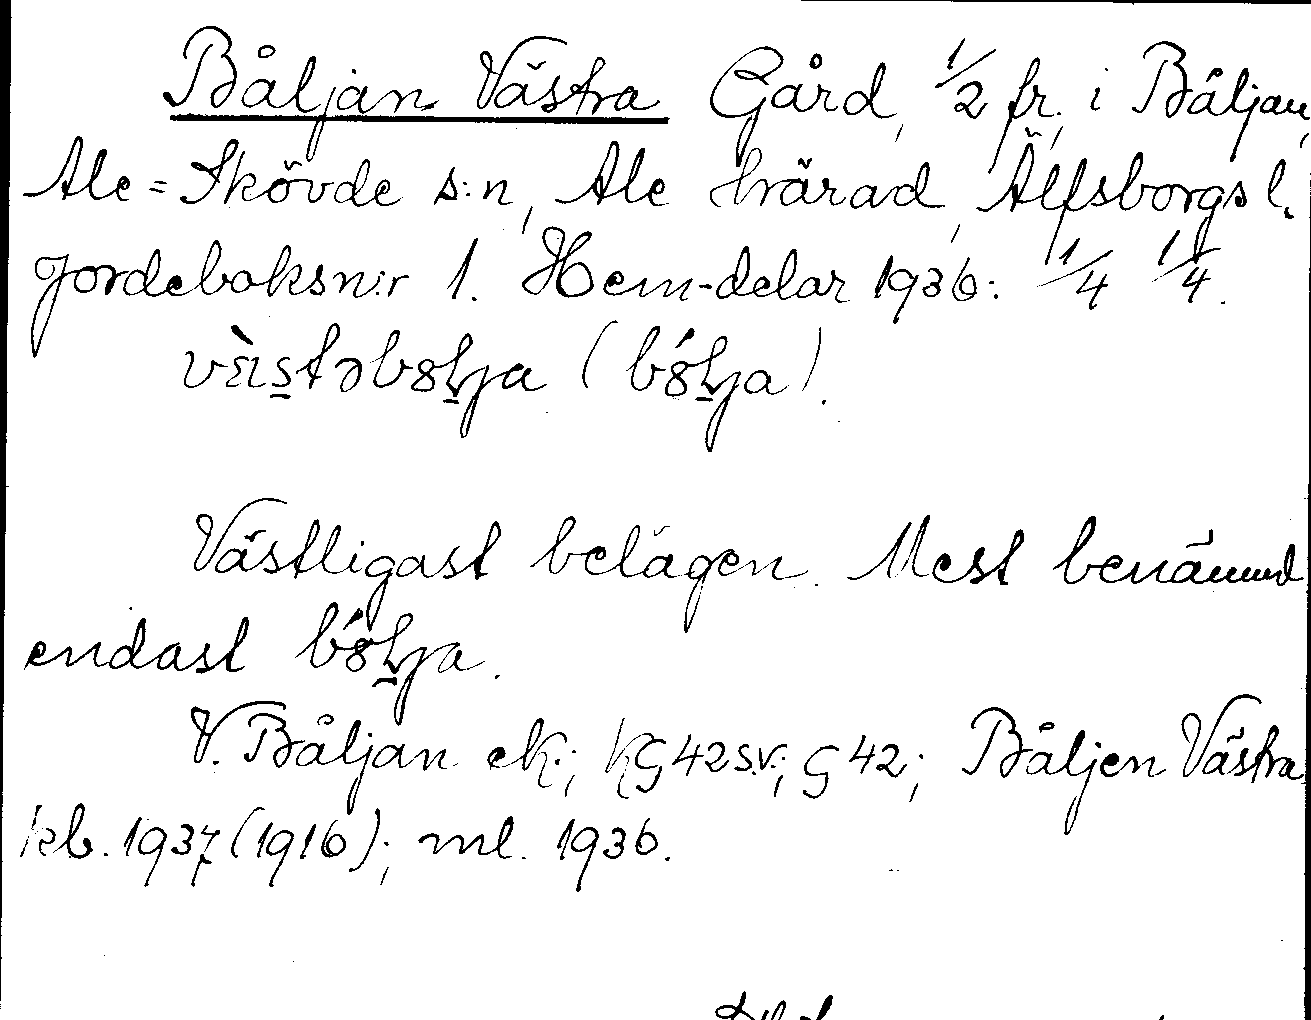 Båljan Västra Gård, 1/2 fr, i Båljan,
Ale=Skövde s:n, Ale härad, Älfsborgs l.
Jordeboksn:r 1. Hem-delar 1936: 1/4 1/4.
(
).
Västligast belägen. Mest benämnd
endast
V. Båljan ek.; kG42sv.; G42; Båljen Västra
kb. 1937 (1916); ml. 1936.